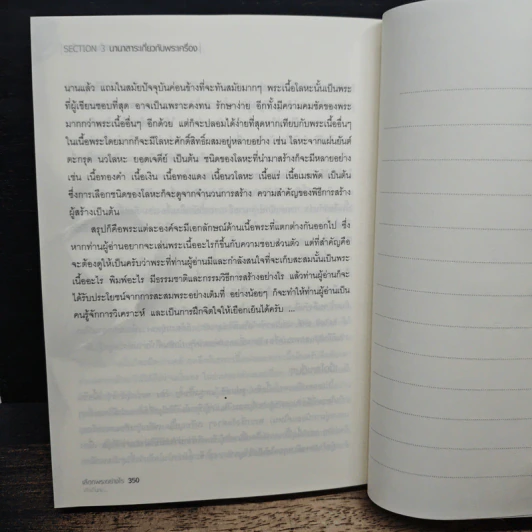 SECTION 3 นานาสาระเกี่ยวกับพระเครื่อง
นานแล้ว แถมในสมัยปัจจุบันค่อนข้างที่จะทันสมัยมากๆ พระเนื้อโลหะนั้นเป็นพระ
ที่ผู้เขียนชอบที่สุด อาจเป็นเพราะคงทน รักษาง่าย อีกทั้งมีความคมชัดขององค์พระ
มากกว่าพระเนื้ออื่นๆ อีกด้วย แต่ก็จะปลอมได้ง่ายที่สุดหากเทียบกับพระเนื้ออื่นๆ
ในเนื้อพระโดยมากก็จะมีโลหะศักดิ์สิทธิ์ผสมอยู่หลายอย่าง เช่น โลหะจากแผ่นยันต์
ตะกรุด นวโลหะ ยอดเจดีย์ เป็นต้น ชนิดของโลหะที่นำมาสร้างก็จะมีหลายอย่าง
เช่น เนื้อทองคำ เนื้อเงิน เนื้อทองแดง เนื้อนวโลหะ เนื้อแร่ เนื้อเมฆพัด เป็นต้น
ซึ่งการเลือกชนิดของโลหะก็จะดูจากจำนวนการสร้าง ความสำคัญของพิธีการสร้าง
ผู้สร้างเป็นต้น
สรุปก็คือพระแต่ละองค์จะมีเอกลักษณ์ด้านเนื้อพระที่แตกต่างกันออกไป ซึ่ง
หากท่านผู้อ่านอยากจะเล่นพระเนื้ออะไรก็ขึ้นกับความชอบส่วนตัว แต่ที่สำคัญคือ
จะต้องดูให้เป็นครับว่าพระที่ท่านผู้อ่านมีและกำลังสนใจที่จะเก็บสะสมนั้นเป็นพระ
เนื้ออะไร พิมพ์อะไร มีธรรมชาติและกรรมวิธีการสร้างอย่างไร แล้วท่านผู้อ่านก็จะ
ได้รับประโยชน์จากการสะสมพระอย่างเต็มที่ อย่างน้อยๆ ก็จะทำให้ท่านผู้อ่านเป็น
คนรู้จักการวิเคราะห์ และเป็นการฝึกจิตใจให้เยือกเย็นได้ครับ ...
350